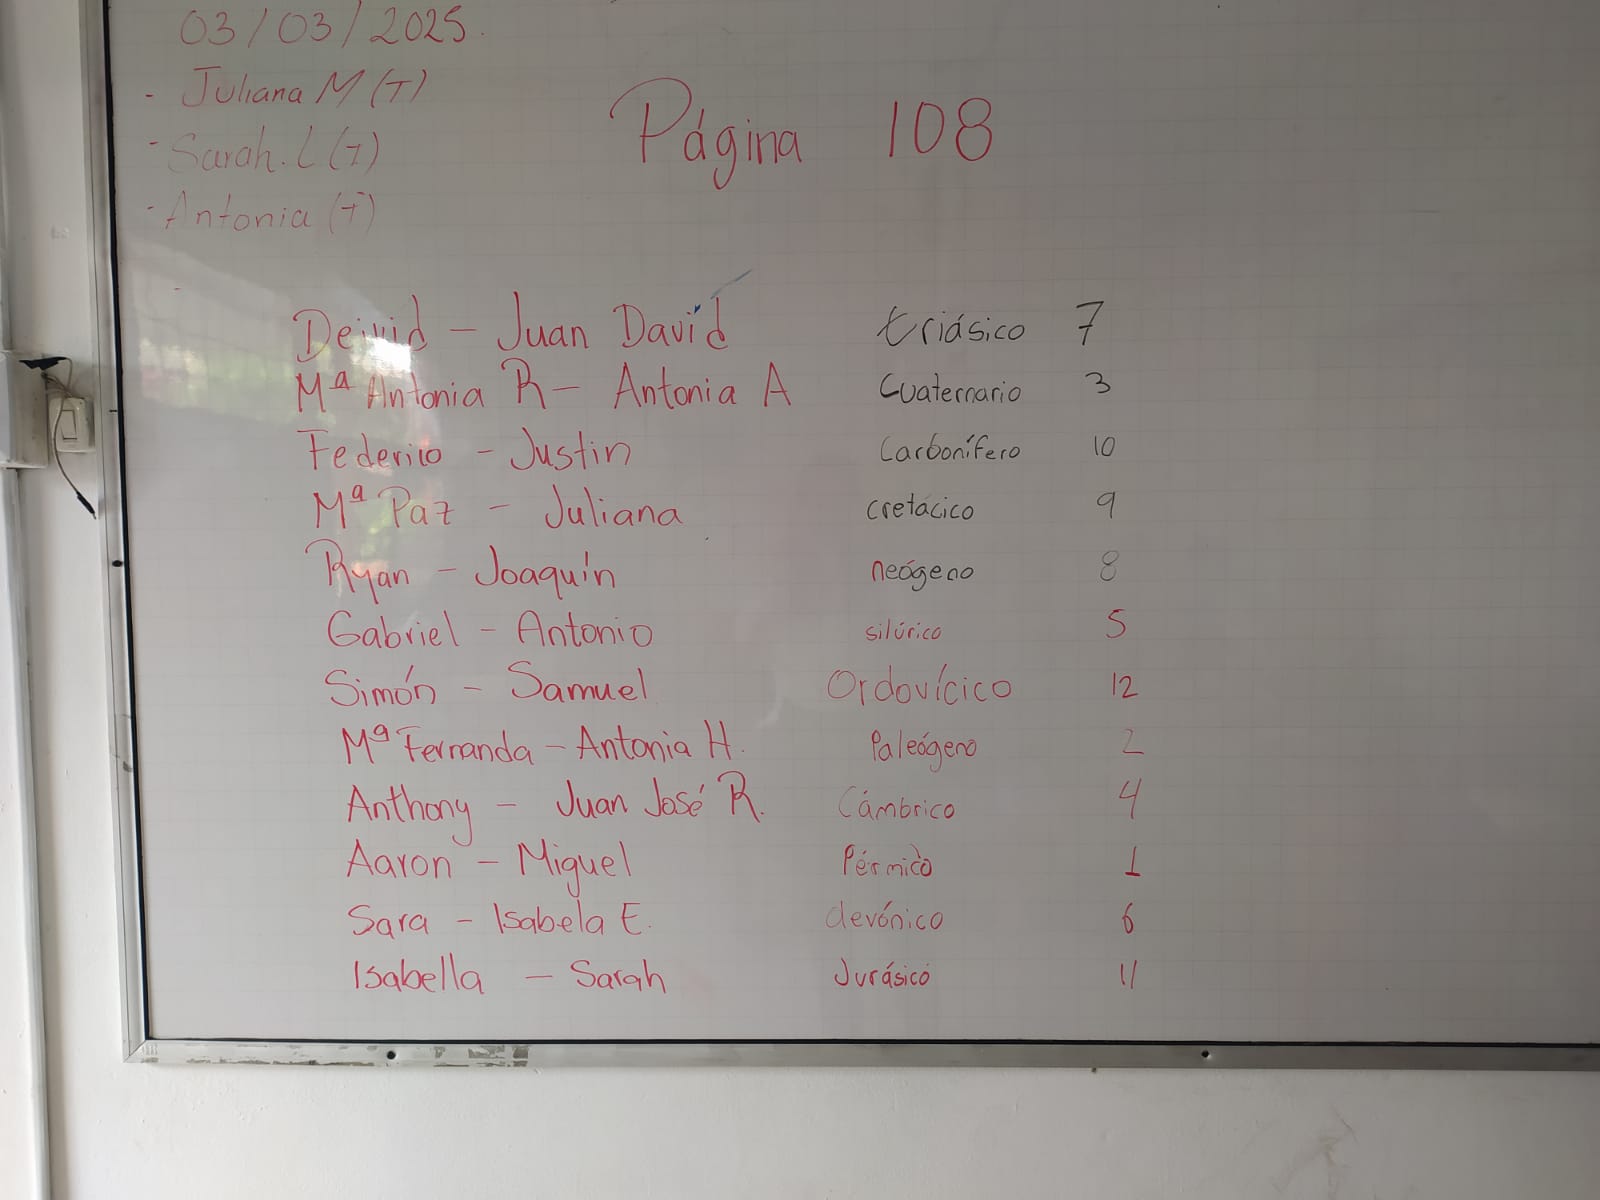 03/03/2025.
- Juliana M (T)
- Sarah. L (T)
- Antonia (T)
Página 108
Deivid - Juan David triásico 7
Mª Antonia R - Antonia A Cuaternario 3
Federico - Justin Carbonífero 10
Mª Paz - Juliana cretácico 9
Ryan - Joaquín neógeno 8
Gabriel - Antonio silúrico 5
Simón - Samuel Ordovícico 12
Mª Fernanda - Antonia H. Paleógeno 2
Anthony - Juan José R. Cámbrico 4
Aaron - Miguel Pérmico 1
Sara - Isabela E. devónico 6
Isabella - Sarah Jurásico 11